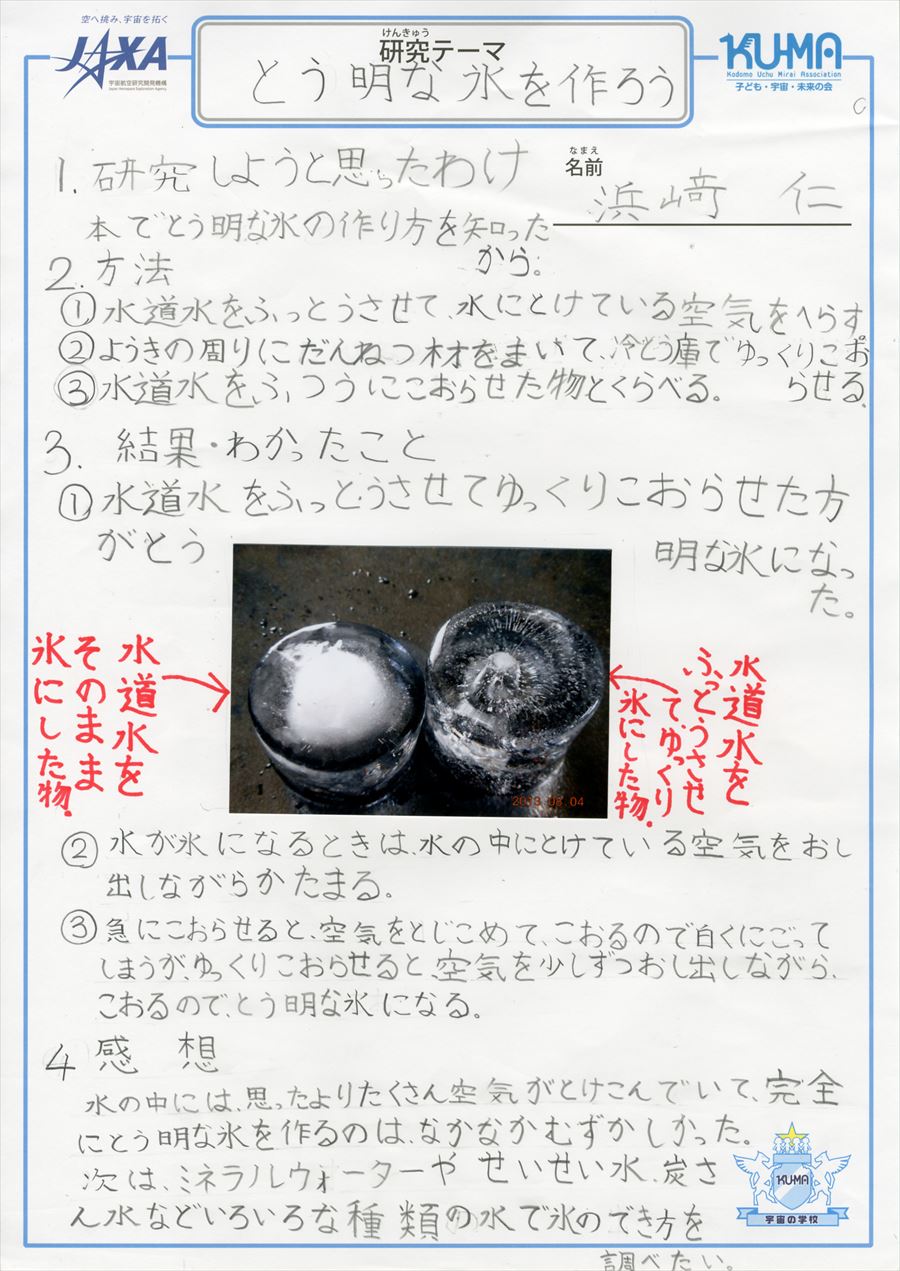 空へ挑み、宇宙を拓く
JAXA
宇宙航空研究開発機構
Japan Aerospace Exploration Agency
けんきゅう
研究テーマ
とう明な氷を作ろう
KU-MA
Kodomo Uchu Mirai Association
子ども・宇宙・未来の会
なまえ
名前
浜﨑 仁
1. 研究しようと思ったわけ
本でとう明な氷の作り方を知った
から。
2. 方法
①水道水をふっとうさせて、水にとけている空気をへらす。
②ようきの周りにだんねつ材をまいて、冷とう庫でゆっくりこお
らせる。
③水道水をふつうにこおらせた物とくらべる。
3. 結果・わかったこと
①水道水をふっとうさせてゆっくりこおらせた方
がとう明な氷になっ
た。
水道水を
そのまま
氷にした物。
水道水を
ふっとうさせ
て、ゆっくり
氷にした物。
2013.08.04
②水が氷になるときは、水の中にとけている空気をおし
出しながらかたまる。
③急にこおらせると、空気をとじこめて、こおるので白くにごって
しまうが、ゆっくりこおらせると、空気を少しずつおし出しながら、
こおるので、とう明な氷になる。
4 感想
水の中には、思ったよりたくさん空気がとけこんでいて、完全
にとう明な氷を作るのは、なかなかむずかしかった。
次は、ミネラルウォーターやせいせい水、炭さ
ん水などいろいろな種類の水で氷のでき方を
調べたい。
KU-MA
宇宙の学校